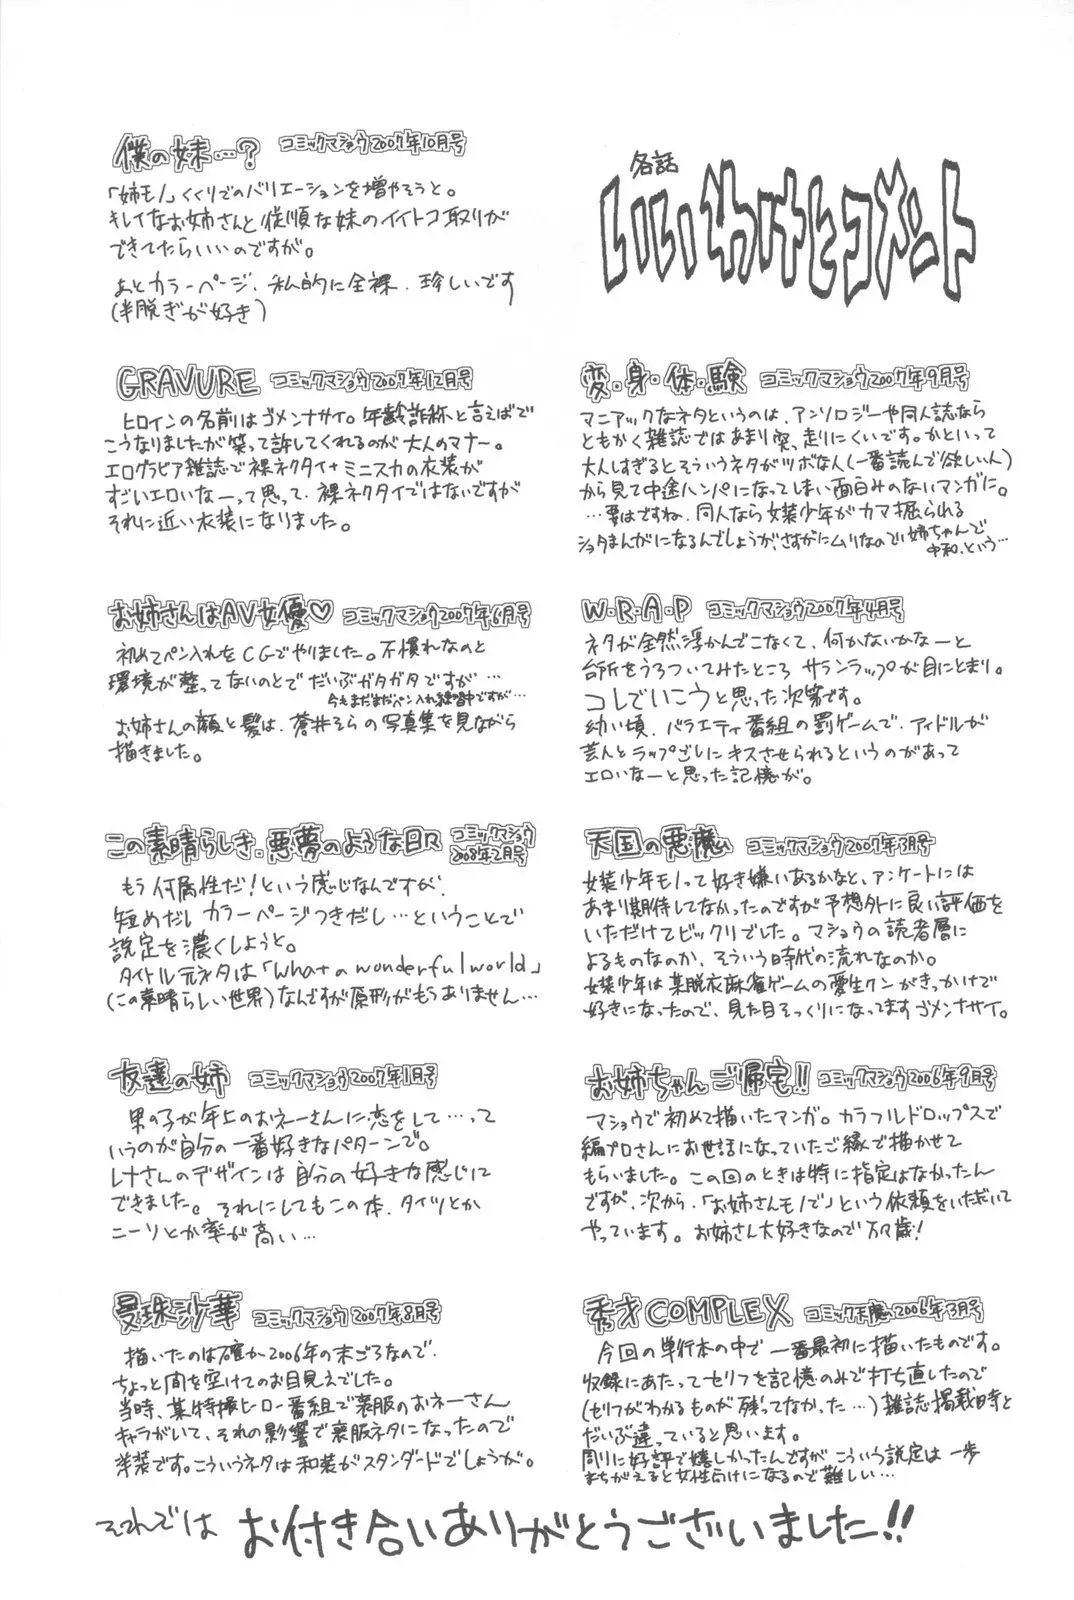 各話
いいわけとコメント
変・身・体・験 コミックマショウ2007年9月号
マニアックなネタというのは、アンソロジーや同人誌なら
ともかく雑誌ではあまり突っ走りにくいです。かといって
大人しすぎるとそういうネタがツボな人(一番読んで欲しい人)
から見て中途ハンパになってしまい面白みのないマンガに。
…要はですね、同人なら女装少年がカマ掘られる
ショタまんがになるんでしょうが、さすがにムリなので姉ちゃんで
中和、という…
W・R・A・P コミックマショウ2007年4月号
ネタが全然浮かんでこなくて、何かないかなーと
台所をうろついてみたところ サランラップが目にとまり。
コレでいこうと思った次第です。
幼い頃、バラエティ番組の罰ゲームで、アイドルが
芸人とラップごしにキスさせられるというのがあって
エロいなーと思った記憶が。
天国の悪魔 コミックマショウ2007年3月号
女装少年モノって好き嫌いあるかなと、アンケートには
あまり期待してなかったのですが予想外に良い評価を
いただけてビックリでした。マショウの読者層に
よるものなのか、そういう時代の流れなのか。
女装少年は某脱衣麻雀ゲームの愛生クンがきっかけで
好きになったので、見た目そっくりになってますゴメンナサイ。
お姉ちゃんご帰宅!! コミックマショウ2006年9月号
マショウで初めて描いたマンガ。カラフルドロップスで
編プロさんにお世話になっていたご縁で描かせて
もらいました。この回のときは特に指定はなかったん
ですが、次から、「お姉さんモノで」という依頼をいただいて
やっています。お姉さん大好きなので万歳!
秀才COMPLEX コミック天魔2006年3月号
今回の単行本の中で一番最初に描いたものです。
収録にあたってセリフを記憶のみで打ち直したので
(セリフがわかるものが残ってなかった…)雑誌掲載時と
だいぶ違っていると思います。
周りに好評で嬉しかったんですがこういう設定は一歩
まちがえると女性向けになるので難しい…
僕の妹…? コミックマショウ2007年10月号
「姉モノ」くくりでのバリエーションを増やそうと。
キレイなお姉さんと従順な妹のイイトコ取りが
できてたらいいのですが。
あとカラーページ、私的に全裸、珍しいです
(半脱ぎが好き)
GRAVURE コミックマショウ2007年12月号
ヒロインの名前はゴメンナサイ。年齢詐称と言えばで
こうなりましたが笑って許してくれるのが大人のマナー。
エログラビア雑誌で裸ネクタイ+ミニスカの衣装が
すごいエロいなーって思って、裸ネクタイではないですが
それに近い衣装になりました。
お姉さんはAV女優♡ コミックマショウ2007年6月号
初めてペン入れをCGでやりました。不慣れなのと
環境が整ってないのとでだいぶガタガタですが…
今もまだまだペン入れ練習中ですが…
お姉さんの顔と髪は、蒼井そらの写真集を見ながら
描きました。
この素晴らしき、悪夢のような日々 コミックマショウ2008年2月号
もう何属性だ!という感じなんですが、
短めだし カラーページつきだし…ということで
設定を濃くしようと。
タイトル元ネタは「What a wonderful world」
(この素晴らしい世界)なんですが原形がもうありません…
友達の姉 コミックマショウ2007年1月号
男の子が年上のおネーさんに恋をして…って
いうのが自分の一番好きなパターンで。
レナさんのデザインは自分の好きな感じに
できました。それにしてもこの本、タイツとか
ニーソとか率が高い…
曼珠沙華 コミックマショウ2007年8月号
描いたのは確か2006年の末ごろなので、
ちょっと間を空けてのお目見えでした。
当時、某特撮ヒーロー番組で喪服のおネーさん
キャラがいて、それの影響で喪服ネタになったので
洋装です。こういうネタは和装がスタンダードでしょうが。
それでは お付き合いありがとうございました!!